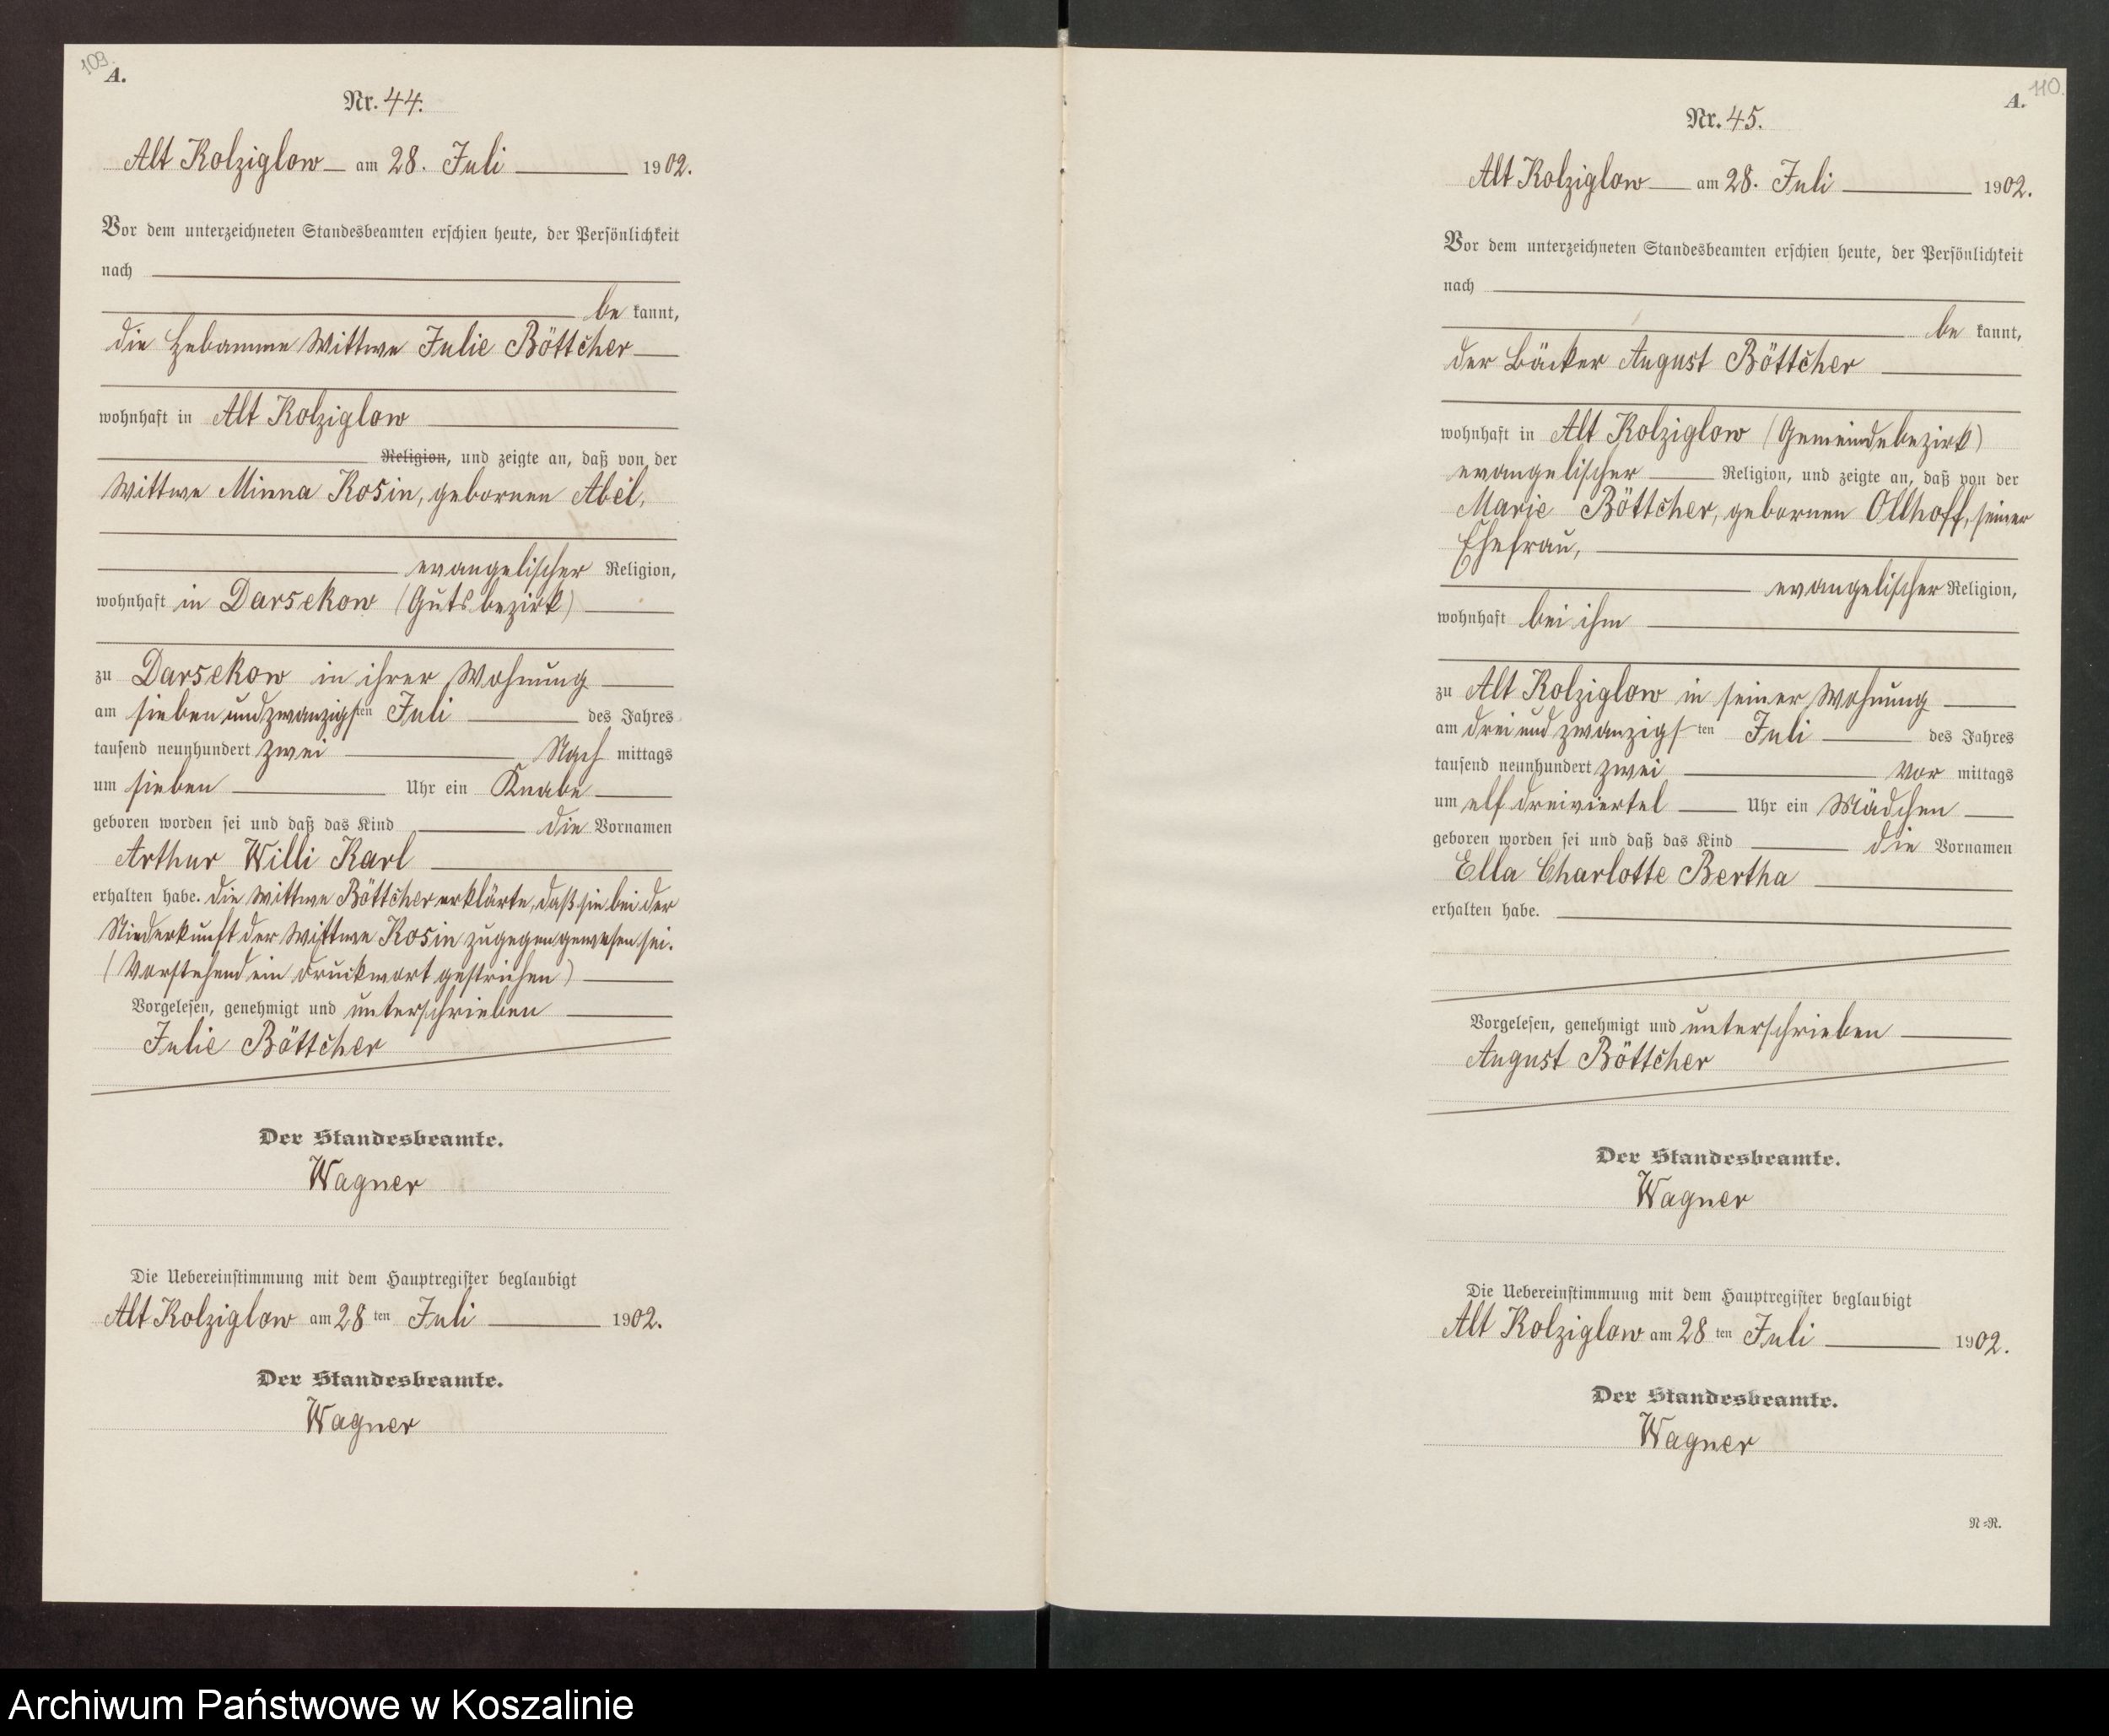 109.
A.
Nr. 44.
Alt Kolziglow am 28. Juli 1902.
Vor dem unterzeichneten Standesbeamten erschien heute, der Persönlichkeit
nach
be kannt,
die Hebamme Wittwe Julie Böttcher
wohnhaft in Alt Kolziglow
Religion, und zeigte an, daß von der
Wittwe Minna Kosin, gebornen Abel,
evangelischer Religion,
wohnhaft in Darsekow (Gutsbezirk)
zu Darsekow in ihrer Wohnung
am sieben und zwanzigsten Juli des Jahres
tausend neunhundert zwei Nach mittags
um sieben Uhr ein Knabe
geboren worden sei und daß das Kind die Vornamen
Arthur Willi Karl
erhalten habe. Die Wittwe Böttcher erklärte, daß sie bei der
Niederkunft der Wittwe Kosin zugegen gewesen sei.
(Vorstehend ein Druckwort gestrichen)
Vorgelesen, genehmigt und unterschrieben
Julie Böttcher
Der Standesbeamte.
Wagner
Die Uebereinstimmung mit dem Hauptregister beglaubigt
Alt Kolziglow am 28 ten Juli 1902.
Der Standesbeamte.
Wagner
110.
A.
Nr. 45.
Alt Kolziglow am 28. Juli 1902.
Vor dem unterzeichneten Standesbeamten erschien heute, der Persönlichkeit
nach
be kannt,
der Bäcker August Böttcher
wohnhaft in Alt Kolziglow (Gemeindebezirk)
evangelischer Religion, und zeigte an, daß von der
Marie Böttcher, gebornen Ollhoff, seiner
Ehefrau,
evangelischer Religion,
wohnhaft bei ihm
zu Alt Kolziglow in seiner Wohnung
am drei und zwanzigs ten Juli des Jahres
tausend neunhundert zwei Vor mittags
um elf dreiviertel Uhr ein Mädchen
geboren worden sei und daß das Kind die Vornamen
Ella Charlotte Bertha
erhalten habe.
Vorgelesen, genehmigt und unterschrieben
August Böttcher
Der Standesbeamte.
Wagner
Die Uebereinstimmung mit dem Hauptregister beglaubigt
Alt Kolziglow am 28 ten Juli 1902.
Der Standesbeamte.
Wagner
N=R.
Archiwum Państwowe w Koszalinie